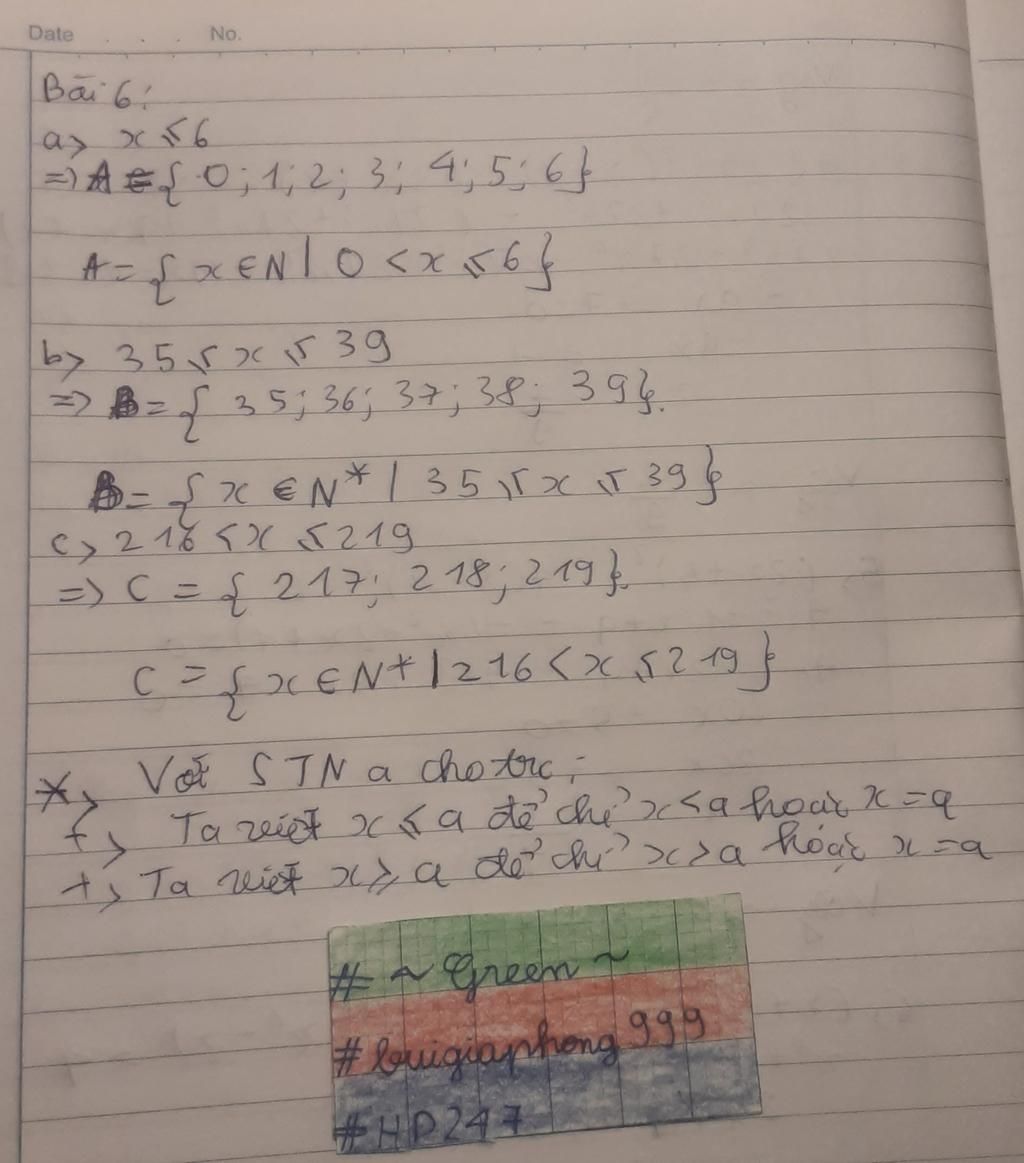 Date . . . No.
Bài 6:
a> x ≤ 6
=> A = { 0 ; 1 ; 2 ; 3 ; 4 ; 5 ; 6 }
A = { x ∈ N | 0 < x ≤ 6 }
b> 35 ≤ x ≤ 39
=> B = { 35 ; 36 ; 37 ; 38 ; 39 }.
B = { x ∈ N* | 35 ≤ x ≤ 39 }
c> 216 < x ≤ 219
=> C = { 217 ; 218 ; 219 }.
C = { x ∈ N* | 216 < x ≤ 219 }
*> Với STN a cho trc ;
+> Ta viết x ≤ a để chỉ x < a hoặc x = a
+> Ta viết x ≥ a để chỉ x > a hoặc x = a
# ~ Green ~
# buigiaphong 999
# HP247